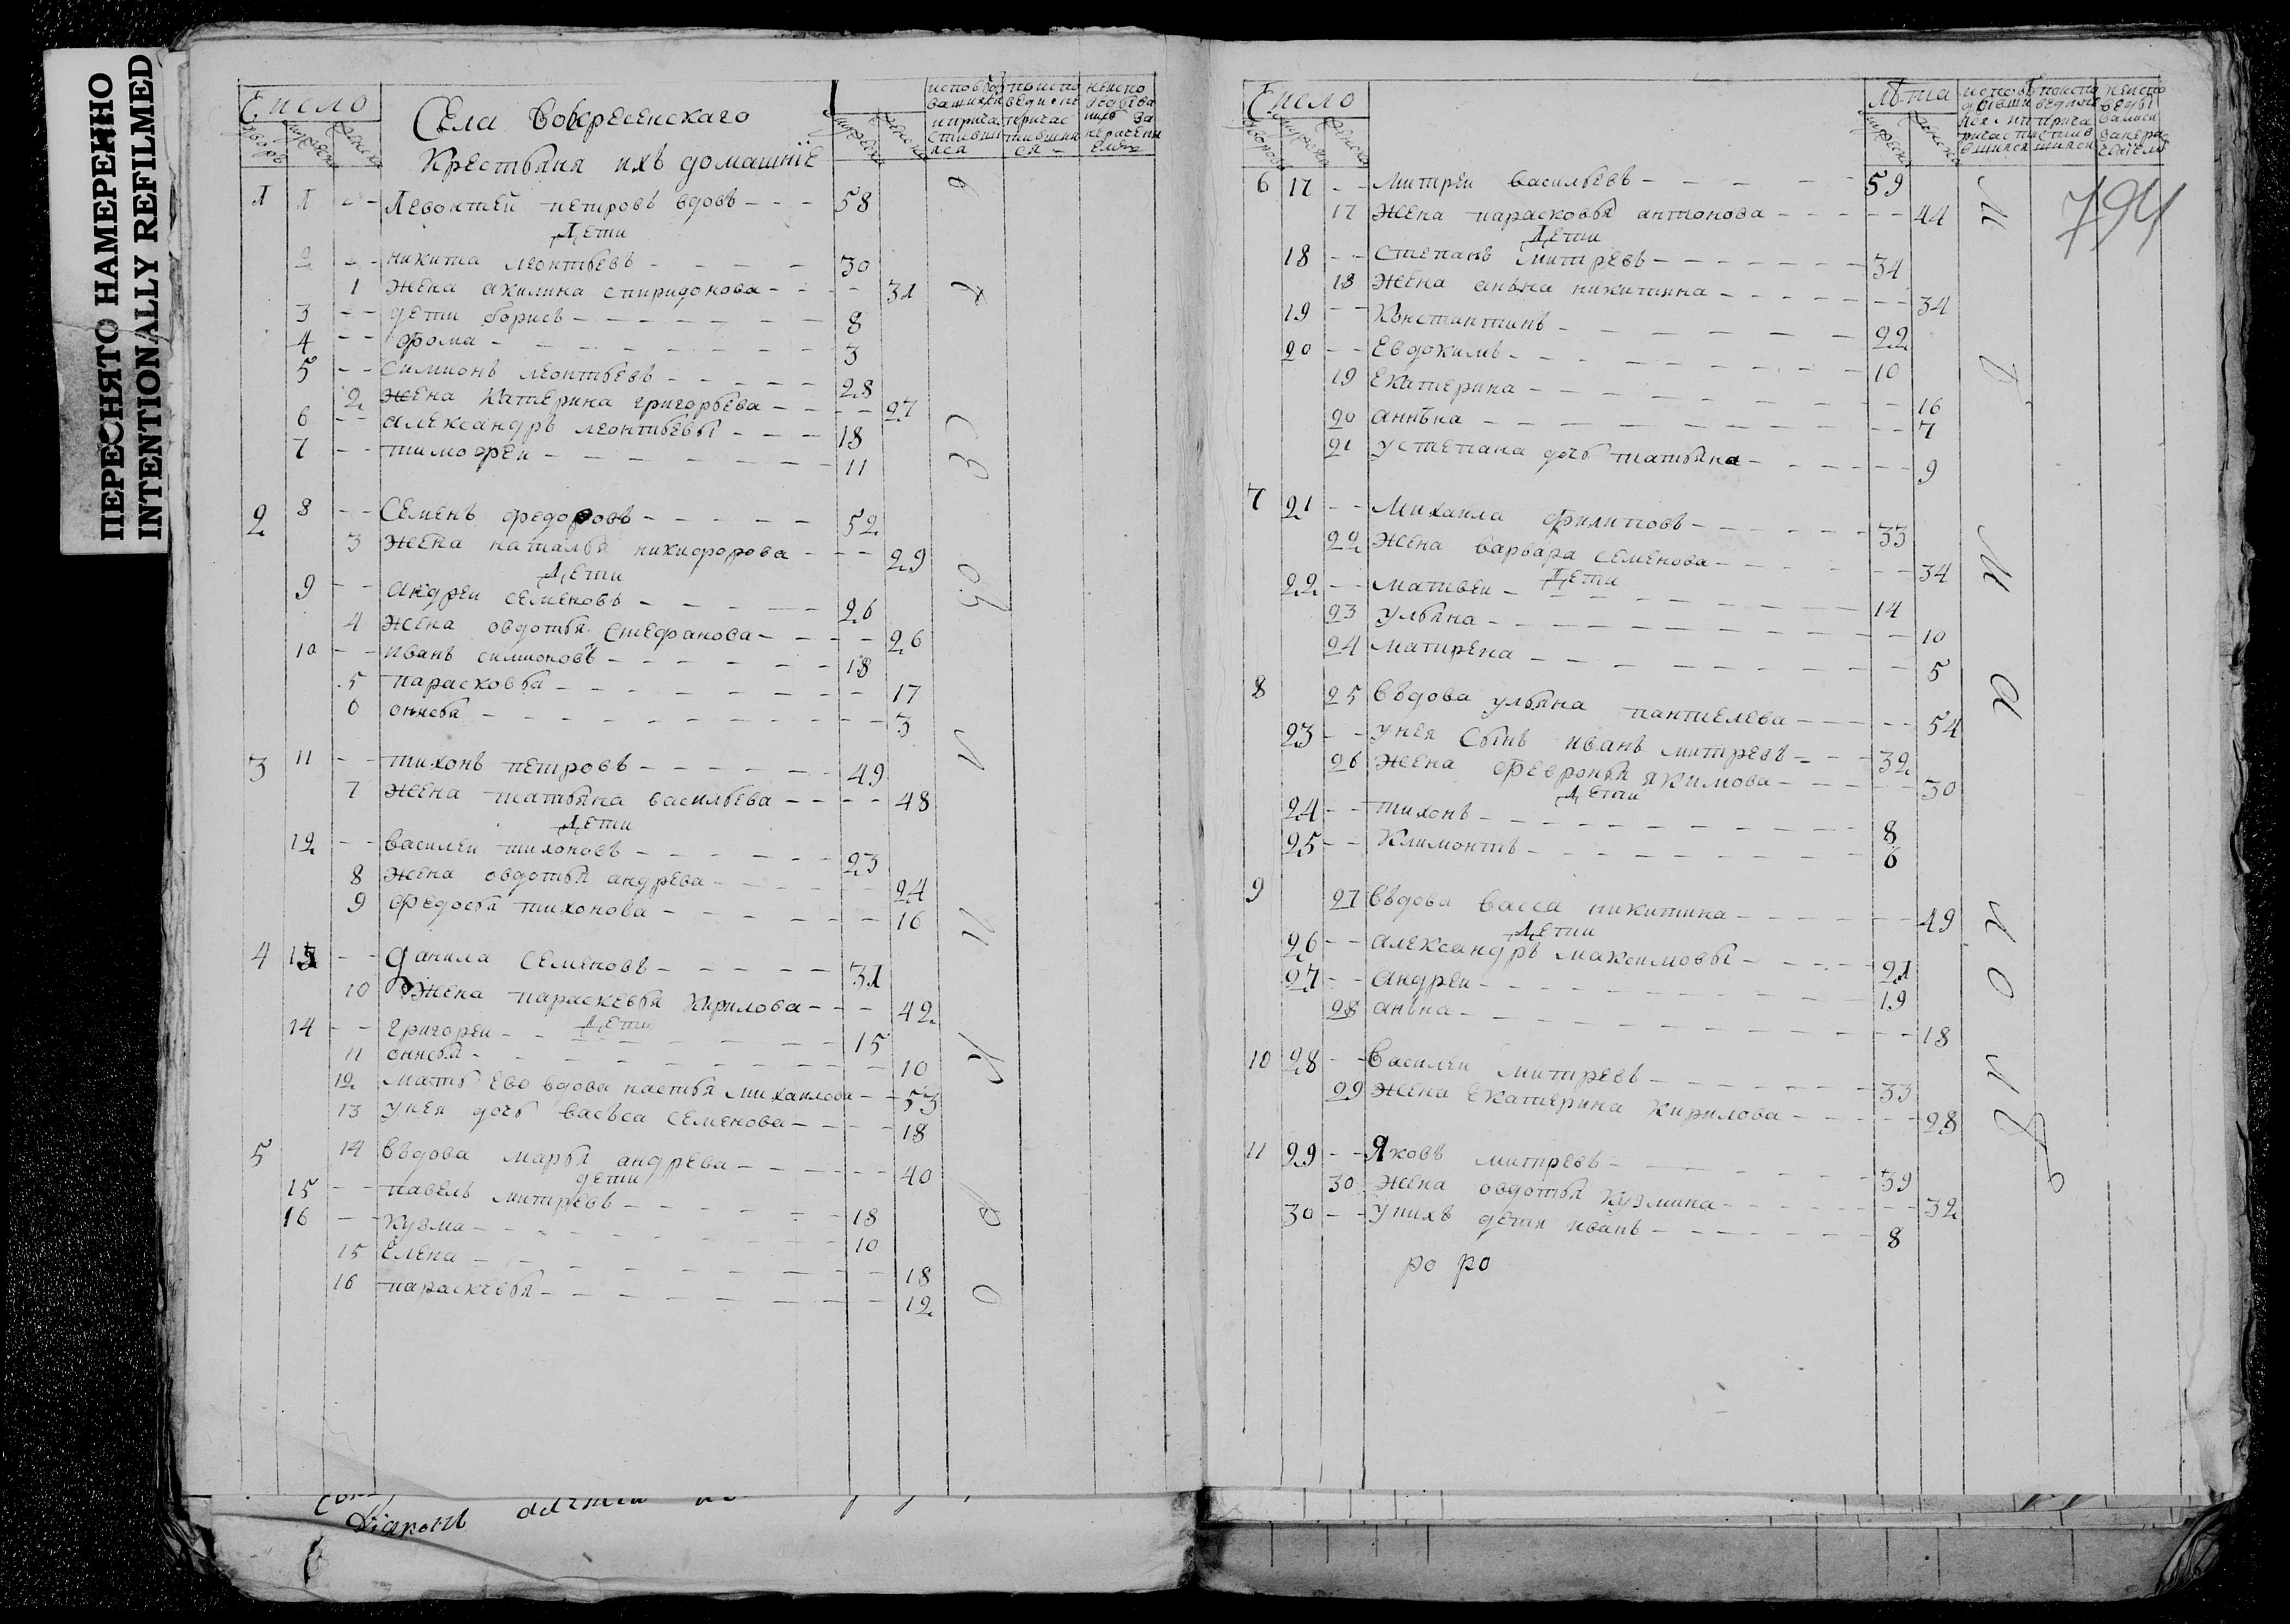 ПЕРЕСНЯТО НАМЕРЕННО
INTENTIONALLY REFILMED
Число
Села Воскресенскаго
Крестьяня ихъ домашние
1 1 -- Левонтей петровъ вдовъ --- 58
Дети
2 -- никита леонтьевъ - - - - - 30
1 жена акилина спиридонова - - - - 31
3 -- дети борисъ - - - - - - - 8
4 -- фома - - - - - - - - - 3
5 -- Симионъ леонтьевъ - - - - - 28
2 жена катерина григорьева - - - - 27
6 -- александръ леонтьевы - - - 18
7 -- тимофеи - - - - - - - - 11
2 8 -- Семенъ федоровъ - - - - - 52
3 жена наталья никифорова - - - 29
Дети
9 -- андреи семеновъ - - - - - 26
4 жена овдотья стефанова - - - - 26
10 -- иванъ симионовъ - - - - - - 18
5 парасковья - - - - - - - - 17
6 онисья - - - - - - - - - - 3
3 11 -- тихонъ петровъ - - - - - - 49
7 жена татьяна васильева - - - - 48
Дети
12 -- василеи тихоновъ - - - - - - 23
8 жена овдотья андрева - - - - - 24
9 федосья тихонова - - - - - - 16
4 13 -- данила семеновъ - - - - - 31
10 жена параскевья кирилова - - - - 42
Дети
14 -- григореи - - - - - - 15
11 онисья - - - - - - - - - 10
12 мать ево вдова настья михаилова - - 53
13 унея дочь васьса семенова - - - - 18
5 14 въдова марья андрева - - - - - - 40
дети
15 -- павелъ митревъ - - - - - - 18
16 -- кузма - - - - - - - - - 10
15 елена - - - - - - - - - - 18
16 параскевья - - - - - - - - - 12
Число
лѣта
794
6 17 -- митреи васильевъ - - - - - 59
17 жена парасковья антонова - - - - - 44
Дети
18 -- степанъ митревъ - - - - - - - 34
18 жена анъна никитина - - - - - - 34
19 -- Константинъ - - - - - - - 22
20 -- Евдокимъ - - - - - - - - 10
19 екатерина - - - - - - - - - 16
20 анньна - - - - - - - - - - 7
21 устепана дочь татьяна - - - - - 9
7 21 -- Михаила филиповъ - - - - - - 33
22 жена варвара семенова - - - - - - 34
Дети
22 -- матвеи - - - - - - - - 14
23 ульяна - - - - - - - - - - 10
24 матрена - - - - - - - - - 5
8 25 въдова ульяна пантелева - - - - - 54
23 -- унея сынъ иванъ митревъ - - - - 32
26 жена феврония якимова - - - - - 30
Дети
24 -- тихонъ - - - - - - - - - 8
25 -- Климонтъ - - - - - - - - 6
9 27 въдова васса никитина - - - - - - 49
Дети
26 -- александръ максимовы - - - - 21
27 -- андреи - - - - - - - - - 19
28 анъна - - - - - - - - - - 18
10 28 -- василеи митревъ - - - - - - 33
29 жена екатерина кирилова - - - - - 28
11 29 -- Яковъ митревъ - - - - - - 39
30 жена овдотья кузмина - - - - - - 32
30 -- унихъ дети иванъ - - - - - - 8
ро ро
Диаконъ